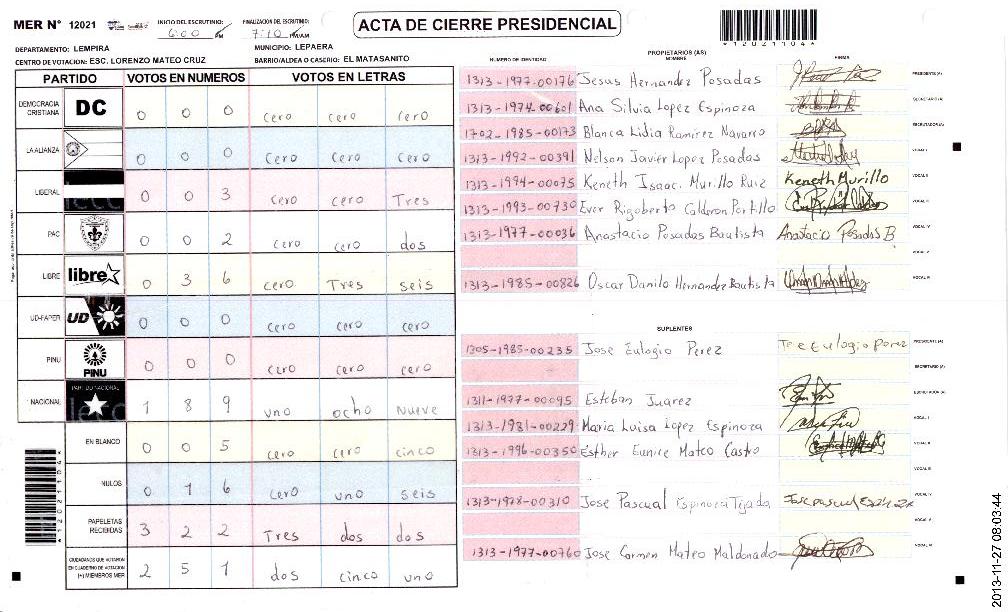 MER N° 12021
INICIO DEL ESCRUTINIO: 6:00 PM
FINALIZACIÓN DEL ESCRUTINIO: 7:10 PM/AM
ACTA DE CIERRE PRESIDENCIAL
*12021104*
DEPARTAMENTO: LEMPIRA
MUNICIPIO: LEPAERA
CENTRO DE VOTACION: ESC. LORENZO MATEO CRUZ
BARRIO/ALDEA O CASERIO: EL MATASANITO
PARTIDO VOTOS EN NUMEROS VOTOS EN LETRAS
DEMOCRACIA CRISTIANA DC 0 0 0 cero cero cero
LA ALIANZA 0 0 0 cero cero cero
LIBERAL 0 0 3 cero cero Tres
PAC 0 0 2 cero cero dos
LIBRE libre 0 3 6 cero Tres seis
UD-FAPER UD 0 0 0 cero cero cero
PINU PINU 0 0 0 cero cero cero
NACIONAL PARTIDO NACIONAL 1 8 9 uno ocho nueve
EN BLANCO 0 0 5 cero cero cinco
NULOS 0 1 6 cero uno seis
PAPELETAS RECIBIDAS 3 2 2 Tres dos dos
CIUDADANOS QUE VOTARON EN CUADERNO DE VOTACION (+) MIEMBROS MER 2 5 1 dos cinco uno
*12021104*
PROPIETARIOS (AS)
NUMERO DE IDENTIDAD NOMBRE FIRMA
1313-1977-00176 Jesus Hernandez Posadas PRESIDENTE (A)
1313-1974-00601 Ana Silvia Lopez Espinoza SECRETARIO (A)
1702-1985-00173 Blanca Lidia Ramirez Navarro ESCRUTADOR (A)
1313-1992-00391 Nelson Javier Lopez Posadas VOCAL I
1313-1994-00075 Keneth Isaac Murillo Ruiz Keneth Murillo VOCAL II
1313-1993-00730 Ever Rigoberto Calderon Portillo VOCAL III
1313-1977-00036 Anastacio Posadas Bautista Anastacio Posadas B VOCAL IV
VOCAL V
1313-1985-00826 Oscar Danilo Hernandez Bautista VOCAL VI
SUPLENTES
1305-1985-00235 Jose Eulogio Perez PRESIDENTE (A)
SECRETARIO (A)
1311-1977-00095 Esteban Juarez ESCRUTADOR (A)
1313-1981-00229 Maria Luisa Lopez Espinoza VOCAL I
1313-1996-00350 Esther Eunice Mateo Castro VOCAL II
VOCAL III
1313-1978-00310 Jose Pascual Espinoza Tejada VOCAL IV
VOCAL V
1313-1977-00760 Jose Carmen Mateo Maldonado VOCAL VI
2013-11-27 08:03:44